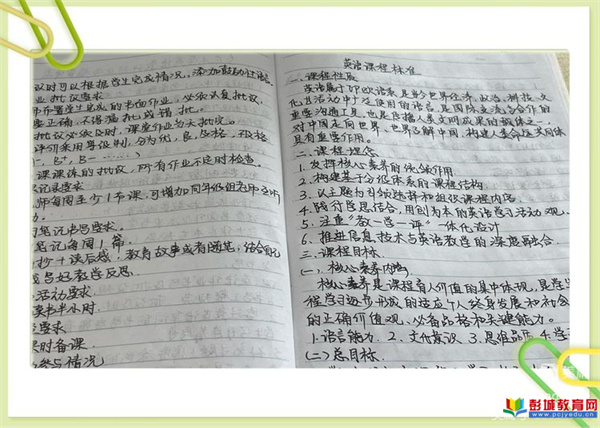 议时可以根据学生完成情况，添加鼓励性语言。
业批改要求
布置学生完成的书面作业，必须认真批改，
要正确，不得漏批或错批。
批改必须及时，课堂作业当天批完。
评价采用等级制，分为优，良，及格，
B+，B-……)
课课练的批改，所有作业不定时检查。
记录要求
师每周至少1节课，可增加同年级组
力。
笔记书写要求。
笔记每周1篇。
抄+读后感：教育故事或有随笔，结合自己
或与好教学反思。
活动要求
读书半小时
要求
时备课
参与情况
英语课程标准
一、课程性质
英语属于印欧语系，是当今世界经济、政治、科技、文
化等活动中广泛使用的语言，是国际交流与合作的
重要沟通工具，也是传播人类文明成果的载体之一，
对中国走向世界、世界了解中国、构建人类命运共同体
具有重要作用。
二、课程理念
1. 发挥核心素养的统领作用
2. 构建基于分级体系的课程结构
3. 以主题为引领选择和组织课程内容
4. 践行学思结合、用创为本的英语学习活动观。
5. 注重“教—学—评”一体化设计
6. 推进信息技术与英语教学的深度融合
三、课程目标
(一)、核心素养内涵
核心素养是课程育人价值的集中体现，是学生
程学习逐步形成的适应个人终身发展和社会
的正确价值观、必备品格和关键能力。
1. 语言能力 2. 文化意识 3. 思维品质 4. 学
(二)总目标
彭城教育网
www.pcjyw.com